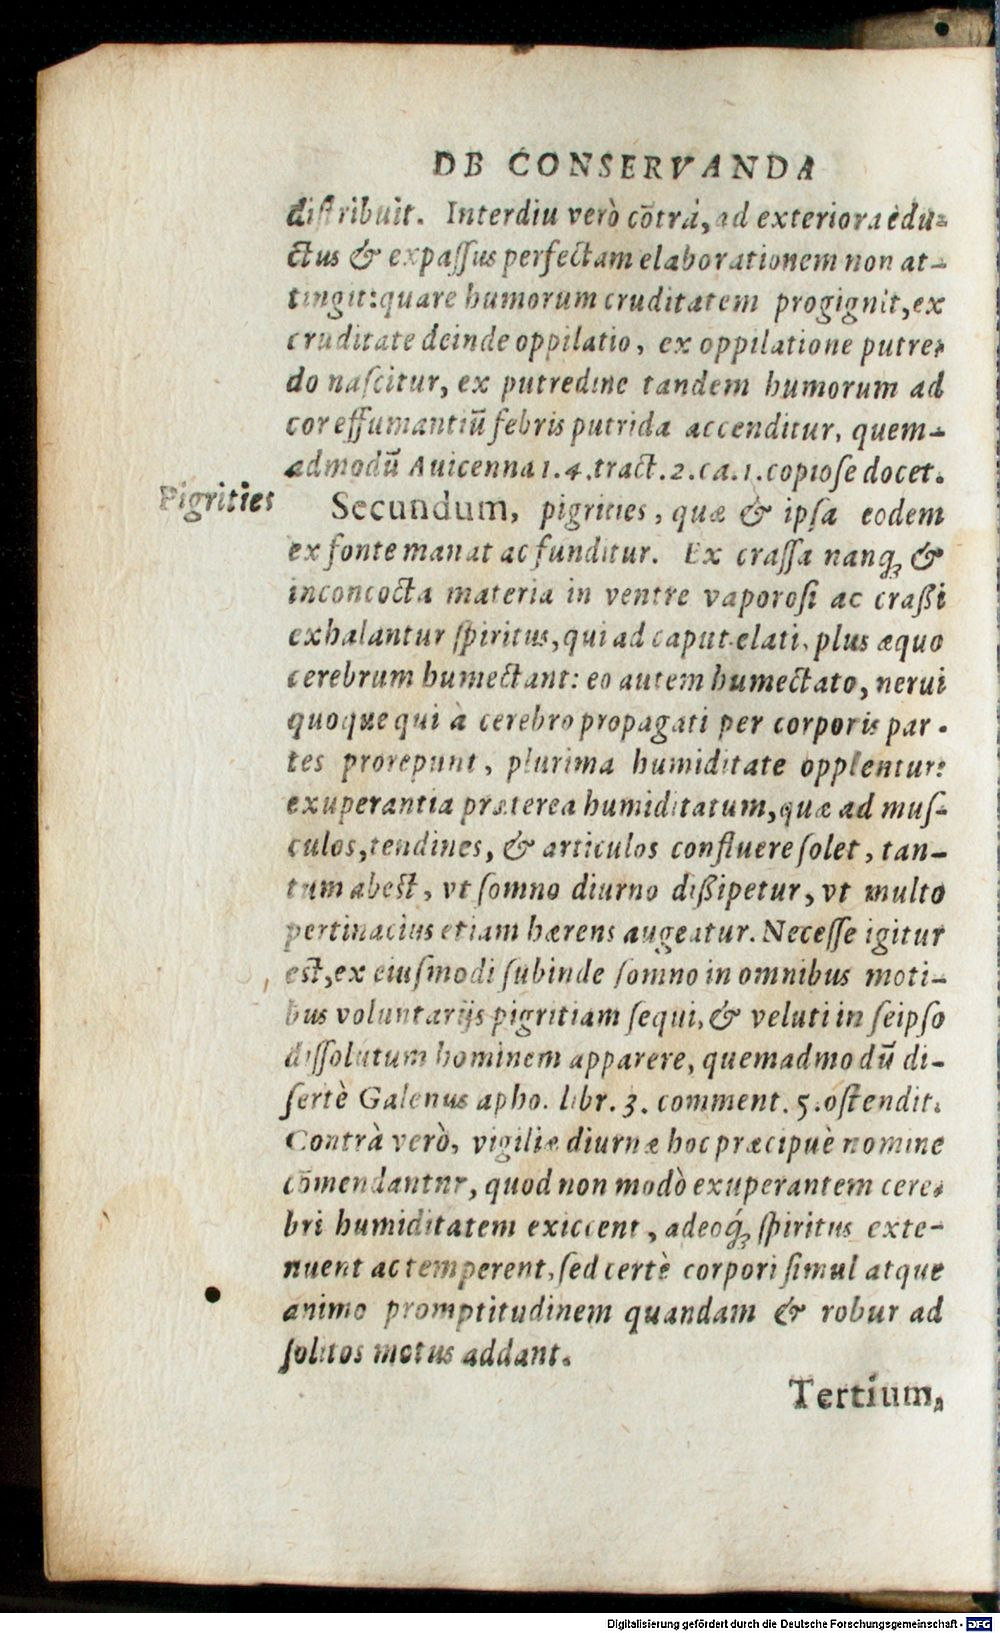 DE CONSERVANDA
distribuit. Interdiu verò cõtrà, ad exteriora èdu-
ctus & expassus perfectam elaborationem non at-
tingit: quare humorum cruditatem progignit, ex
cruditate deinde oppilatio, ex oppilatione putre-
do nascitur, ex putredine tandem humorum ad
cor effumantiũ febris putrida accenditur, quem-
admodũ Auicenna 1. 4. tract. 2. ca. 1. copiose docet.
Pigrities
Secundum, pigrities, quæ & ipsa eodem
ex fonte manat ac funditur. Ex crassa nanq; &
inconcocta materia in ventre vaporosi ac craßi
exhalantur spiritus, qui ad caput elati, plus æquo
cerebrum humectant: eo autem humectato, nerui
quoque qui à cerebro propagati per corporis par-
tes prorepunt, plurima humiditate opplentur:
exuperantia præterea humiditatum, quæ ad mus-
culos, tendines, & articulos confluere solet, tan-
tum abest, vt somno diurno dißipetur, vt multo
pertinacius etiam hærens augeatur. Necesse igitur
est, ex eiusmodi subinde somno in omnibus moti-
bus voluntarijs pigritiam sequi, & veluti in seipso
dissolutum hominem apparere, quemadmodũ di-
sertè Galenus apho. libr. 3. comment. 5. ostendit.
Contrà verò, vigiliæ diurnæ hoc præcipuè nomine
cõmendantnr, quod non modò exuperantem cere-
bri humiditatem exiccent, adeoq́; spiritus exte-
nuent ac temperent, sed certè corpori simul atque
animo promptitudinem quandam & robur ad
solitos motus addant.
Tertium,
Digitalisierung gefördert durch die Deutsche Forschungsgemeinschaft - DFG